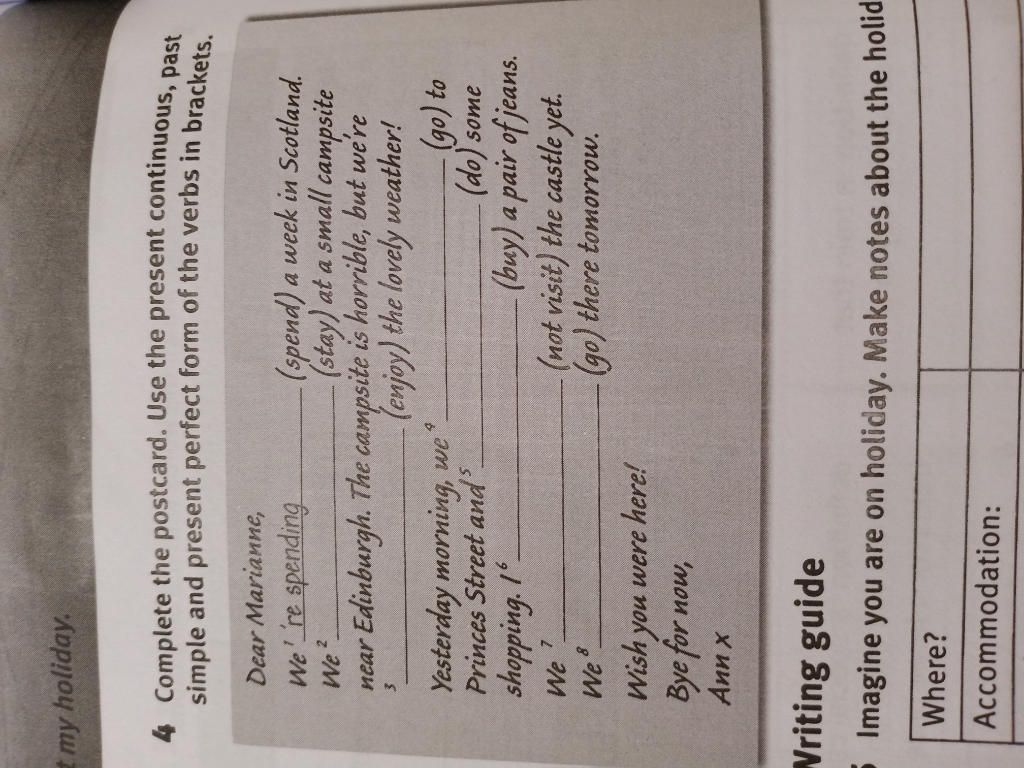 t my holiday.
4 Complete the postcard. Use the present continuous, past
simple and present perfect form of the verbs in brackets.
Dear Marianne,
We 1 're spending (spend) a week in Scotland.
We 2 ____________ (stay) at a small campsite
near Edinburgh. The campsite is horrible, but we're
3 ____________ (enjoy) the lovely weather!
Yesterday morning, we 4 ____________ (go) to
Princes Street and 5 ____________ (do) some
shopping. I 6 ____________ (buy) a pair of jeans.
We 7 ____________ (not visit) the castle yet.
We 8 ____________ (go) there tomorrow.
Wish you were here!
Bye for now,
Ann x
Writing guide
Imagine you are on holiday. Make notes about the holid
Where?
Accommodation: